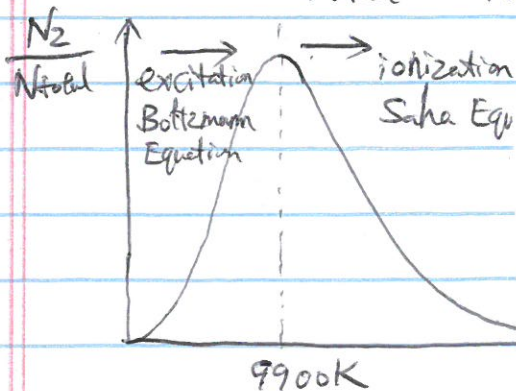 N2
Ntotal
excitation
Boltzmann
Equation
ionization
Saha Equ
9900K